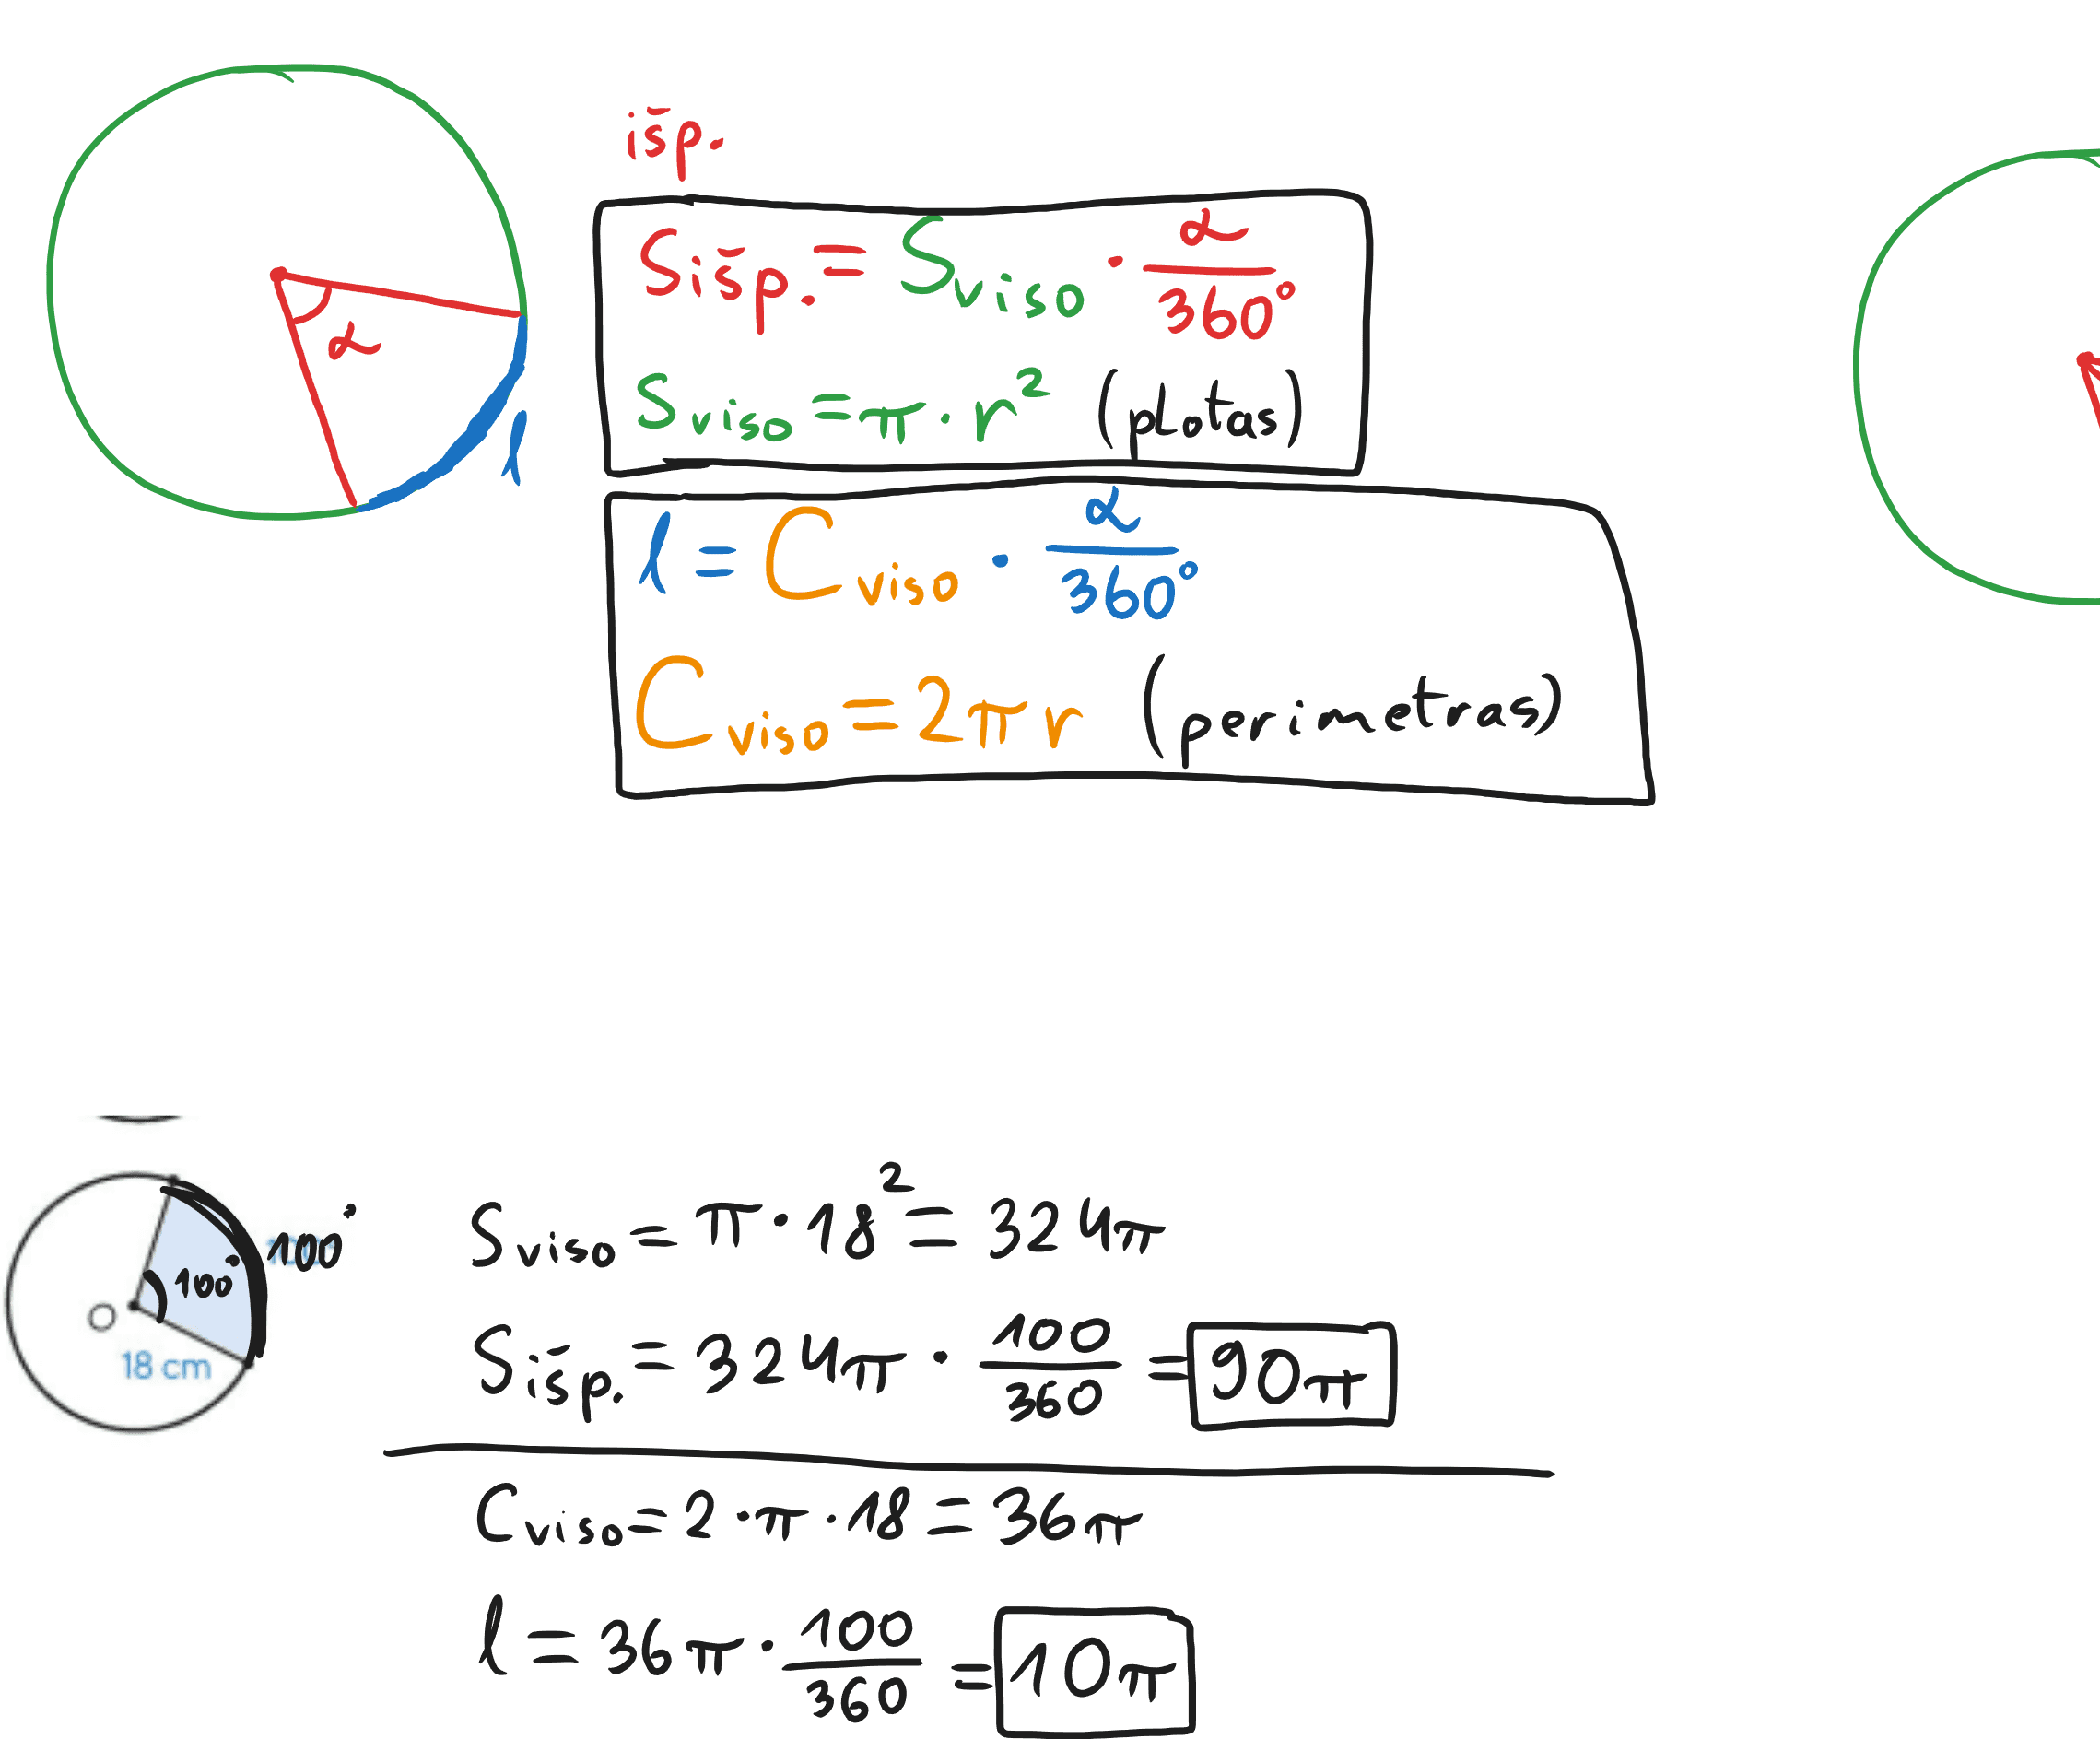 α
l
išp.
Sišp. = Sviso · α/360°
Sviso = π · r² (plotas)
l = Cviso · α/360°
Cviso = 2πr (perimetras)
100°
100°
O
18 cm
Sviso = π · 18² = 324π
Sišp. = 324π · 100/360 = 90π
Cviso = 2 · π · 18 = 36π
l = 36π · 100/360 = 10π